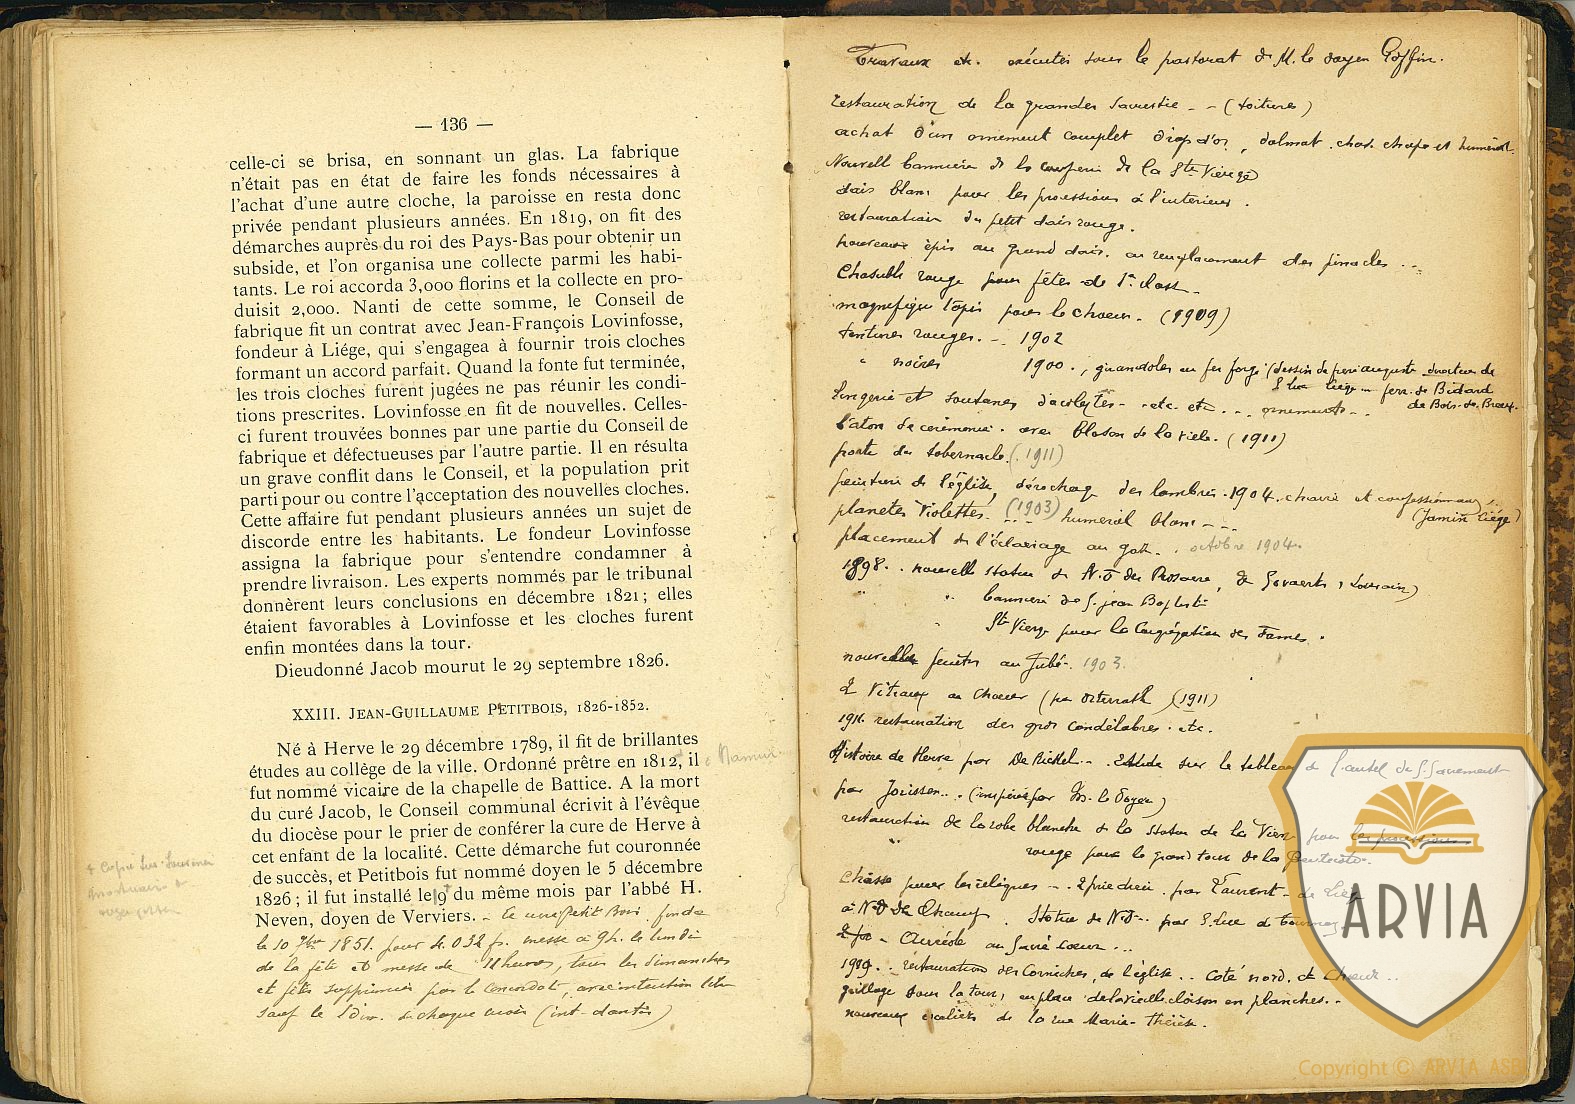 — 136 —
celle-ci se brisa, en sonnant un glas. La fabrique
n'était pas en état de faire les fonds nécessaires à
l'achat d'une autre cloche, la paroisse en resta donc
privée pendant plusieurs années. En 1819, on fit des
démarches auprès du roi des Pays-Bas pour obtenir un
subside, et l'on organisa une collecte parmi les habi-
tants. Le roi accorda 3,000 florins et la collecte en pro-
duisit 2,000. Nanti de cette somme, le Conseil de
fabrique fit un contrat avec Jean-François Lovinfosse,
fondeur à Liége, qui s'engagea à fournir trois cloches
formant un accord parfait. Quand la fonte fut terminée,
les trois cloches furent jugées ne pas réunir les condi-
tions prescrites. Lovinfosse en fit de nouvelles. Celles-
ci furent trouvées bonnes par une partie du Conseil de
fabrique et défectueuses par l'autre partie. Il en résulta
un grave conflit dans le Conseil, et la population prit
parti pour ou contre l'acceptation des nouvelles cloches.
Cette affaire fut pendant plusieurs années un sujet de
discorde entre les habitants. Le fondeur Lovinfosse
assigna la fabrique pour s'entendre condamner à
prendre livraison. Les experts nommés par le tribunal
donnèrent leurs conclusions en décembre 1821; elles
étaient favorables à Lovinfosse et les cloches furent
enfin montées dans la tour.
Dieudonné Jacob mourut le 29 septembre 1826.
XXIII. JEAN-GUILLAUME PETITBOIS, 1826-1852.
Né à Herve le 29 décembre 1789, il fit de brillantes
études au collège de la ville. Ordonné prêtre en 1812, il
fut nommé vicaire de la chapelle de Battice. A la mort
du curé Jacob, le Conseil communal écrivit à l'évêque
du diocèse pour le prier de conférer la cure de Herve à
cet enfant de la localité. Cette démarche fut couronnée
de succès, et Petitbois fut nommé doyen le 5 décembre
1826; il fut installé le 9 du même mois par l'abbé H.
Neven, doyen de Verviers. - Ce curé Petit Bois fonda
le 10 1851 pour 4.032 fr. messe à 9 h. le lundi
de la fête et messe de 11 heures, tous les dimanches
et fêtes supprimées par le concordat, avec intention
sauf le 1 dim. de chaque mois
à Namur
Travaux etc. exécutés sous le pastorat de M. le doyen Goffin.
restauration de la grande sacristie - - (toiture)
achat d'un ornement complet drap d'or, dalmat. chas. chape et huméral.
Nouvell bannière de la confrérie de la Ste Vierge
dais blanc pour les processions à l'intérieur.
restauration du petit dais rouge.
nouveaux épis au grand dais. en remplacement des pinacles ...
Chasuble rouge pour fêtes de 1e class -
magnifique tapis pour le choeur. (1909)
tentures rouges. - 1902
" noires 1900., girandoles en fer forgé (dessin de frère auguste directeur de
S Luc Liége - ferr. de Bidard
de Bois-de-Breux.
lingerie et soutanes d'acolytes - etc. etc. - ornements -
bâton de cérémonie. avec blason de la ville. (1911)
porte du tabernacle. (1911)
peinture de l'église, décrochage des lambris. 1904. chaire et confessionnaux,
(Jamin Liége)
planètes violettes. (1903) huméral blanc - -
placement de l'éclairage au gaz. . octobre 1904.
1898. . nouvelle statue de N.D du Rosaire, de Govaerts, Louvain)
" " bannière de S. jean Baptiste
" Ste Vierge pour la Congrégation des Dames.
nouvelles fenêtres au Jubé. 1903.
2 Vitraux au choeur (par Osterrath) (1911)
1911. restauration des gros candélabres. etc.
Histoire de Herve par De Ridel. - Etude sur le tableau de l'autel du S. Sacrement
par Jorissen.. . (inspirée par M. le Doyen)
restauration de la robe blanche de la statue de la Vierge pour les processions.
" rouge pour le grand tour de la Pentecôte.
Châsse pour les reliques - . 2 prie dieu. par Laurent - de Liége
à N.D de Champ. . Statue de N.D - par S. Luc de Tournay
Auréole au Sacré coeur ...
1909. . restauration des Corniches, de l'église .. Coté nord, et Choeur ..
grillage sous la tour, en place de la vieille cloison en planches. -
nouveaux escaliers de la rue Marie-Thérèse.
ARVIA
Copyright © ARVIA ASBL